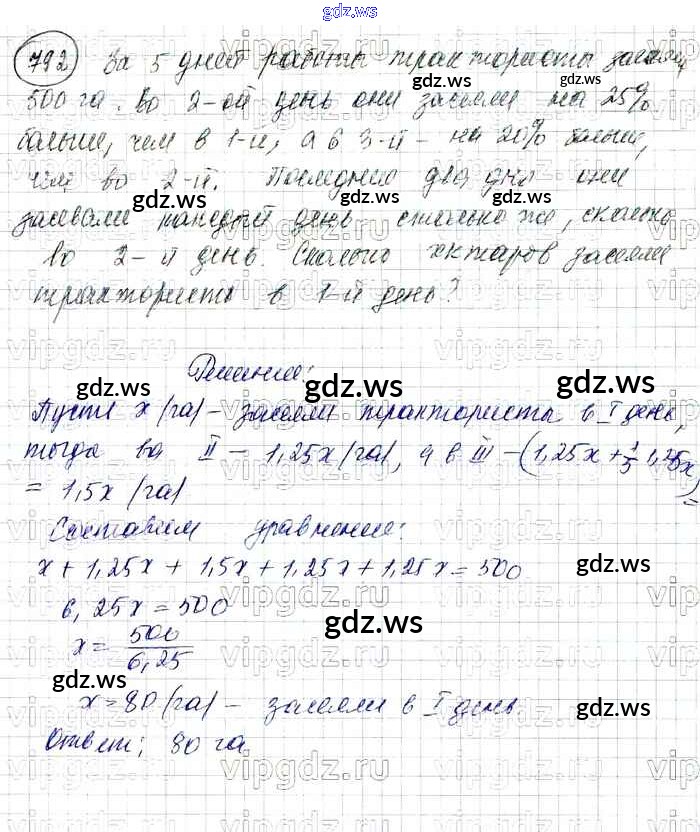 gdz.ws
792 За 5 дней работы трактористы засеяли
500 га. Во 2-ой день они засеяли на 25%
больше, чем в 1-й, а в 3-й - на 20% больше,
чем во 2-й. Последние два дня они
засевали каждый день столько же, сколько
во 2-й день. Сколько гектаров засеяли
трактористы в 1-й день?
Решение:
Пусть x (га) - засеяли трактористы в I день,
тогда во II - 1,25x (га), а в III - (1,25x + 1/5 1,25x) =
= 1,5x (га)
Составим уравнение:
x + 1,25x + 1,5x + 1,25x + 1,25x = 500
6,25x = 500
x = 500/6,25
x = 80 (га) - засеяли в I день
Ответ: 80 га